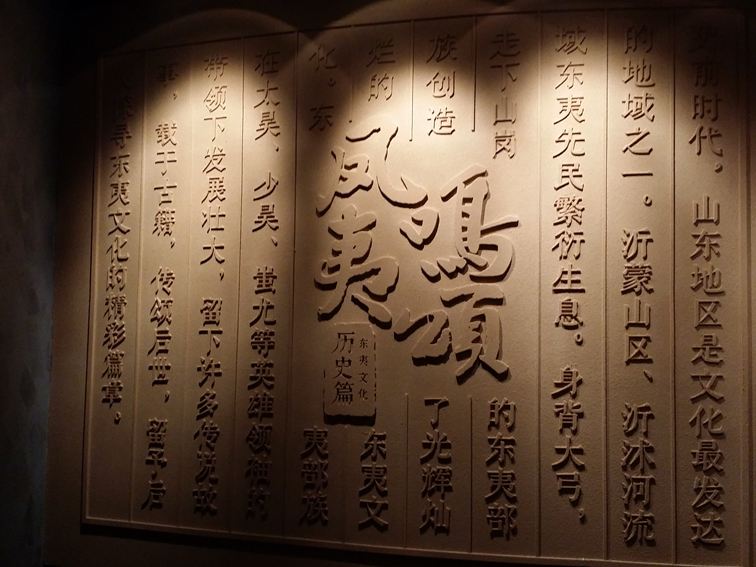 史前时代，山东地区是文化最发达
的地域之一。沂蒙山区、沂沭河流
域东夷先民繁衍生息。身背大弓、
走下山岗的东夷部
族创造了光辉灿
烂的东夷文
化。东夷部族
在太昊、少昊、蚩尤等英雄领袖的
带领下发展壮大，留下许多传说故
事，载于古籍，传颂后世，留予后
人探寻东夷文化的精彩篇章。
凤鸣
夷頌
东夷文化
历史篇